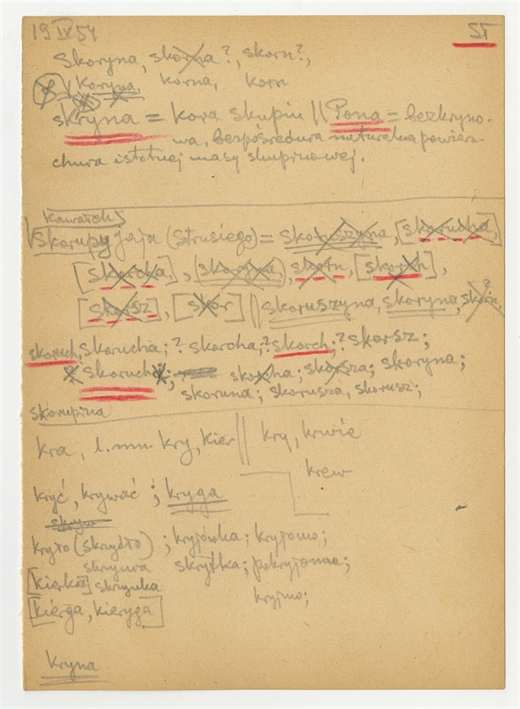 19 IX 54
51
Skoryna, skorna?, skorn?,
Koryna, korna, korn
skryna = kora skupiu || Pona = bezkryno-
wa, bezpośrednia naturalna powierz-
chnia istotnej masy skupinowej.
kawałek
Skorupy jaja (strusiego) = skoruszyna, [skorucha,]
[skorcha,], (skoryna), skorn, [skorch],
[skorsz], [skor] || skoruszyna, skoryna, skorn,
skoruch, skorucha; ? skorcha, ? skorch; ? skorsz;
skoruch; skorcha, skorsza; skoryna;
skoruna; skorusza, skorusz;
skorupina
kra, l. mn. kry, kier || kry, krwie
krew
kryć, krywać; kryga
kryto (skrydło); kryjówka; kryjomo;
skrynra skrytka; pokryjomna;
[kierka] skrzynka
kryjmo;
[kierga, kieryga]
kryna